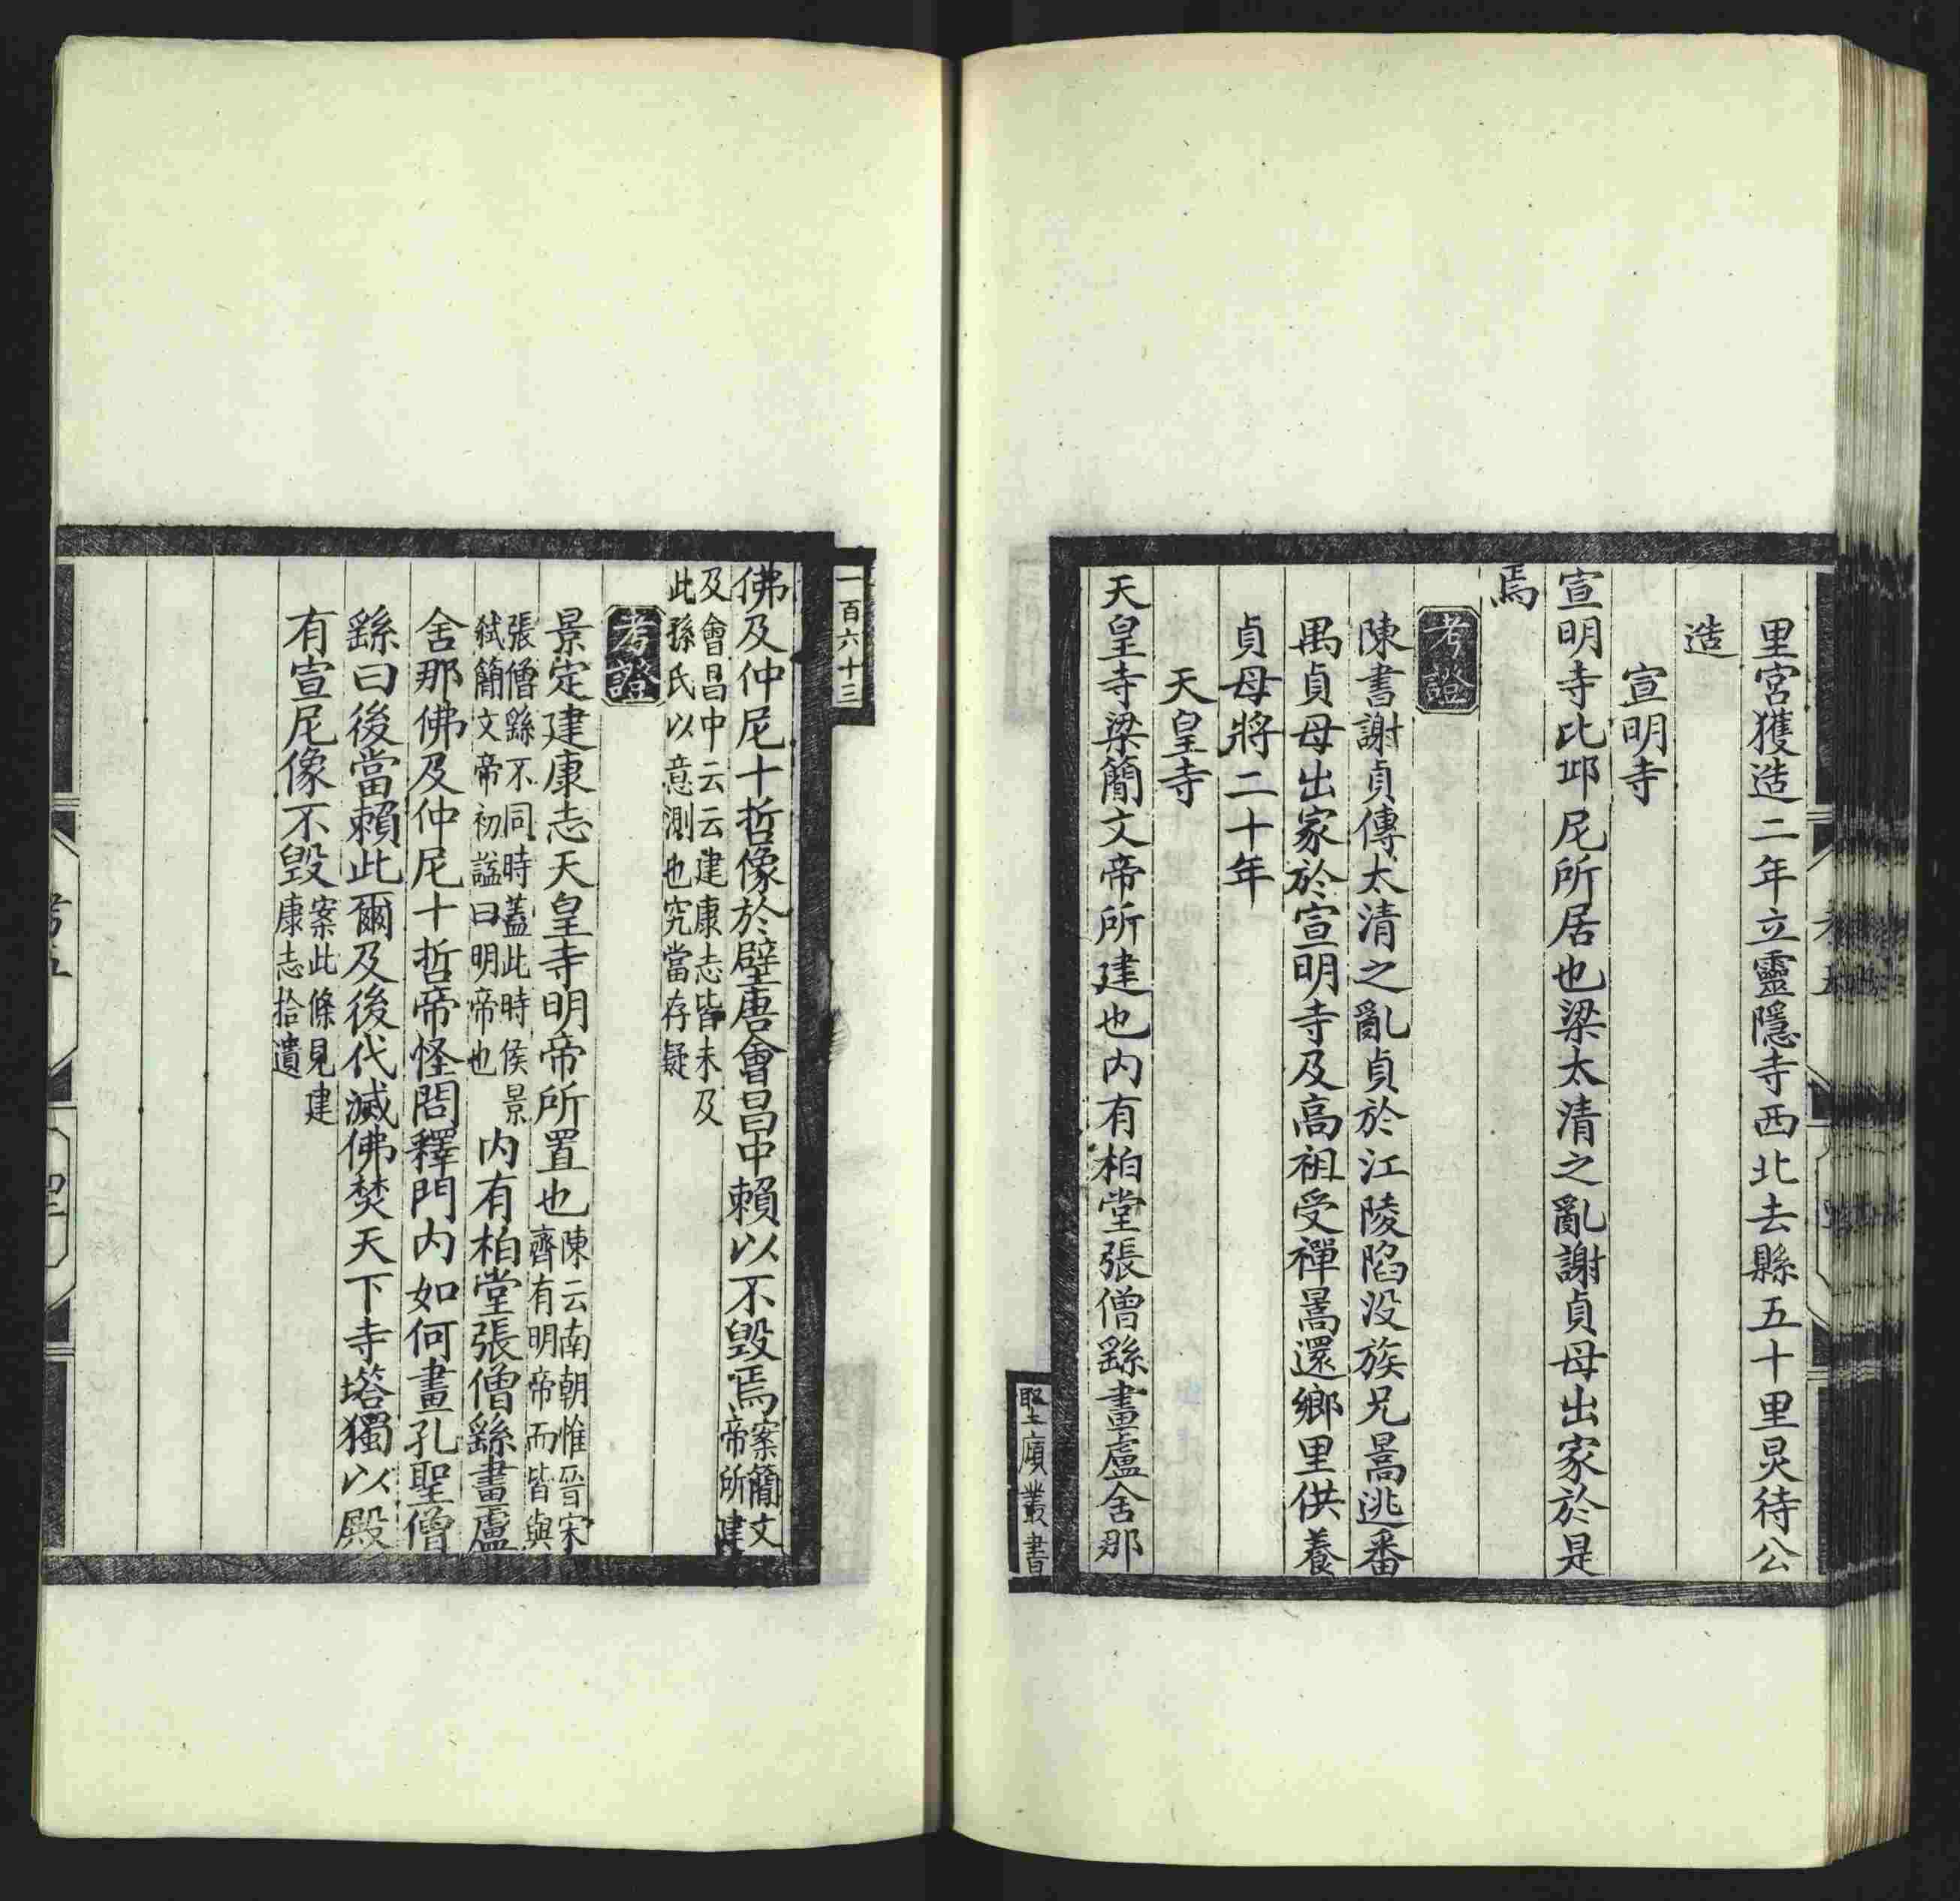 里宮獲造二年立靈隱寺西北去縣五十里炅待公
造
宣明寺
宣明寺比邱尼所居也梁太清之亂謝貞母出家於是
焉
考證
陳書謝貞傳太清之亂貞於江陵陷没族兄暠逃番
禺貞母出家於宣明寺及高祖受禪暠還鄉里供養
貞母將二十年
天皇寺
天皇寺梁簡文帝所建也内有柏堂張僧繇畫盧舍那
堅𢈪叢書
一百六十三
佛及仲尼十哲像於壁唐會昌中賴以不毀焉案簡文帝所建
及會昌中云云建康志皆未及
此孫氏以意測也究當存疑
考證
景定建康志天皇寺明帝所置也陳云南朝惟晉宋齊有明帝而皆與
張僧繇不同時蓋此時侯景弑簡文帝初謚曰明帝也内有柏堂張僧繇畫盧
舍那佛及仲尼十哲帝怪問釋門内如何畫孔聖僧
繇曰後當賴此爾及後代滅佛焚天下寺塔獨以殿
有宣尼像不毀案此條見建康志拾遺